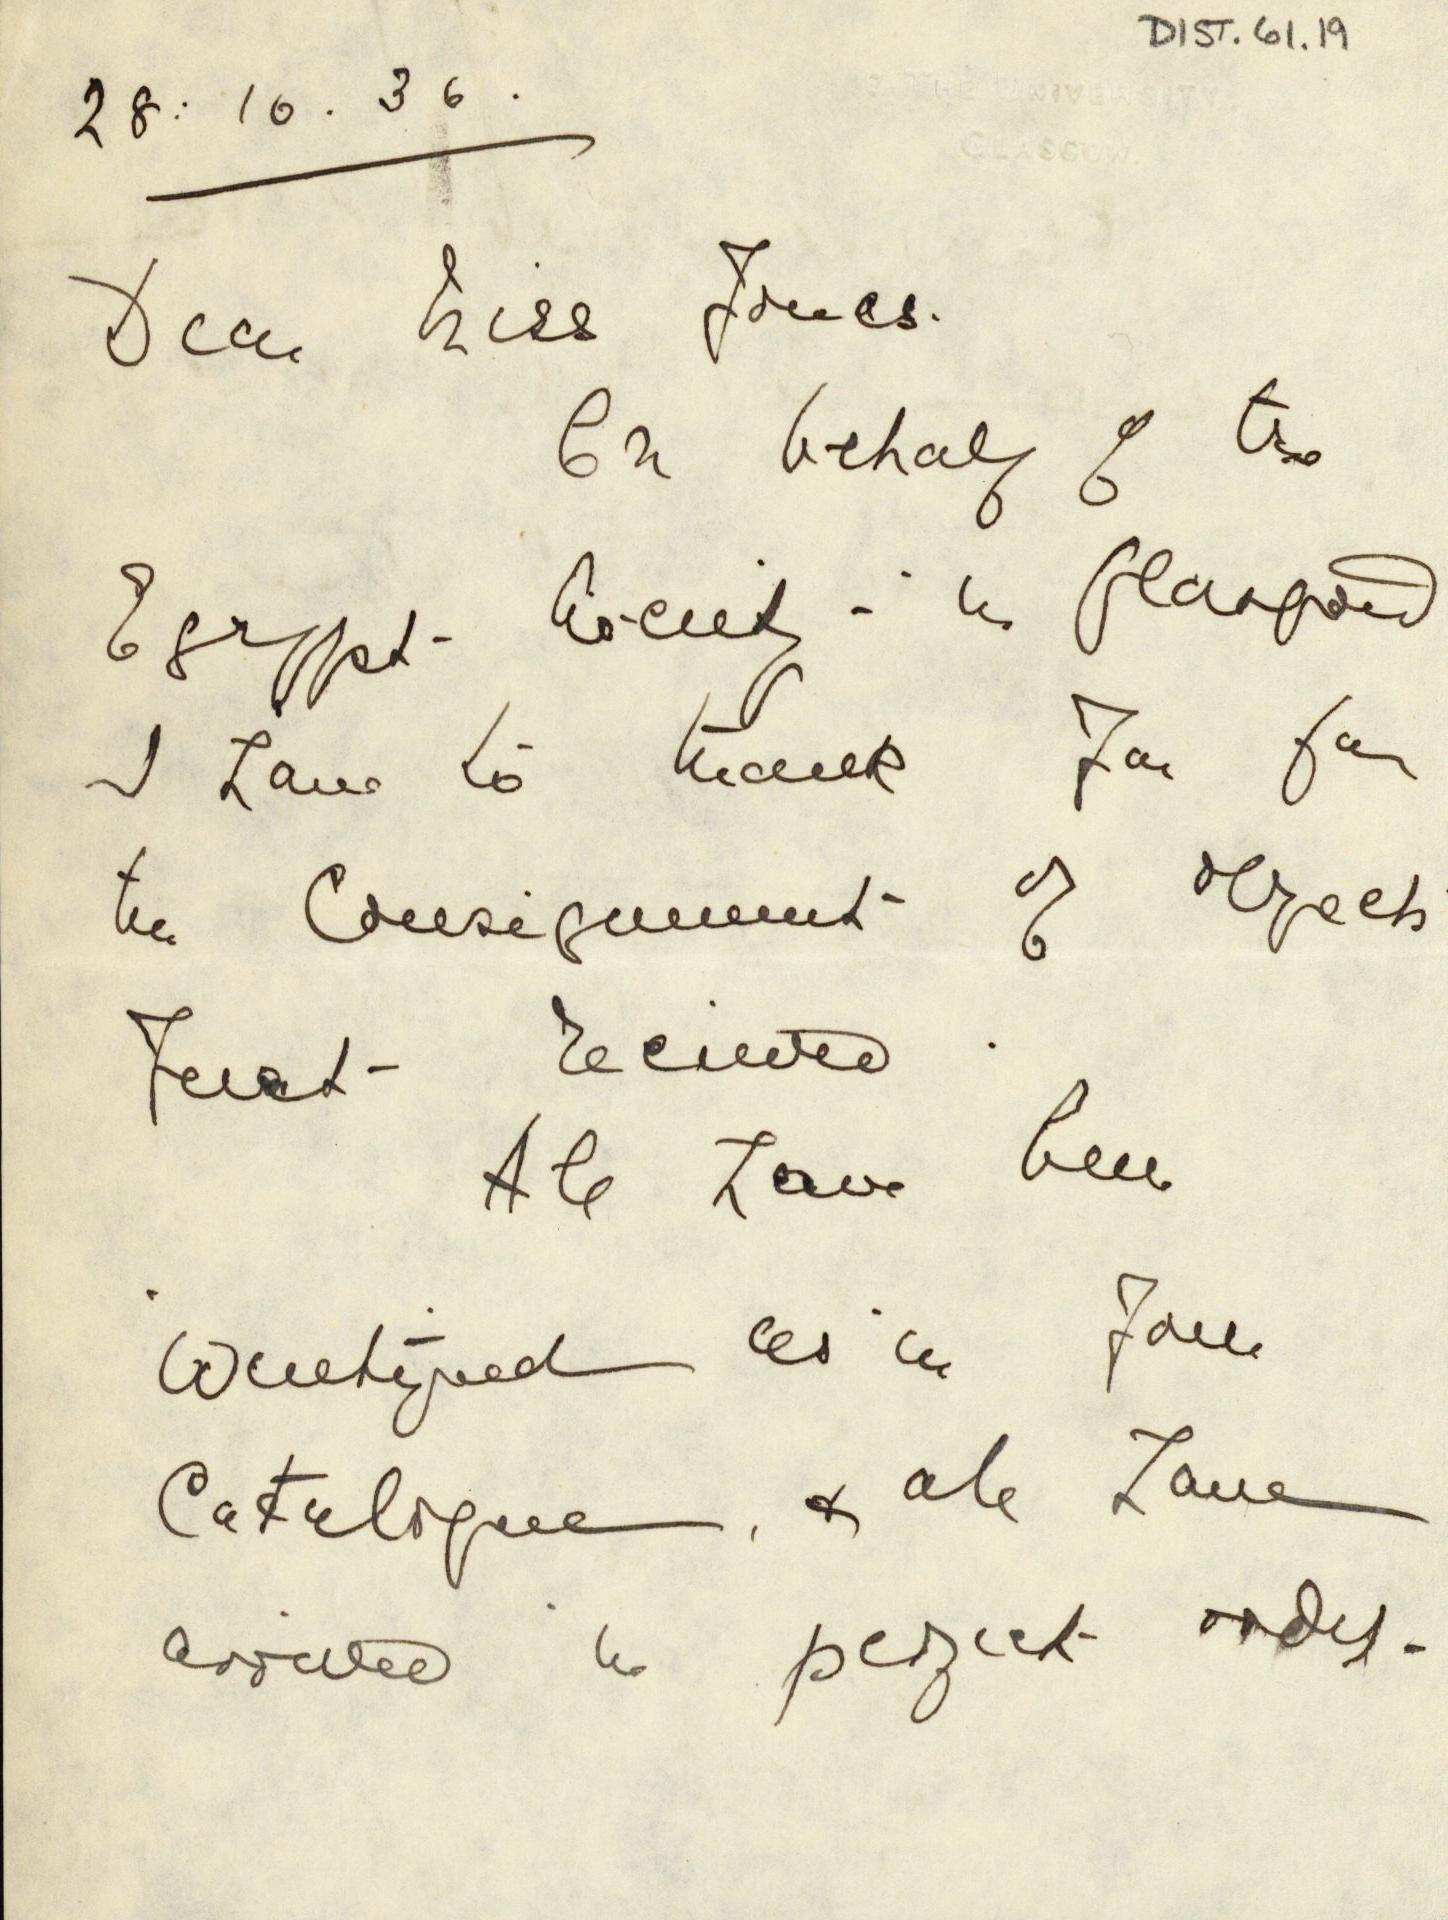 DIST. 61.19
3 THE UNIVERSITY
GLASGOW
28. 10. 36.
Dear Miss Jones.
On behalf of the
Egypt Society in Glasgow
I have to thank you for
the Consignment of objects
just received.
All have been
identified as in your
Catalogue, & all have
arrived in perfect order.